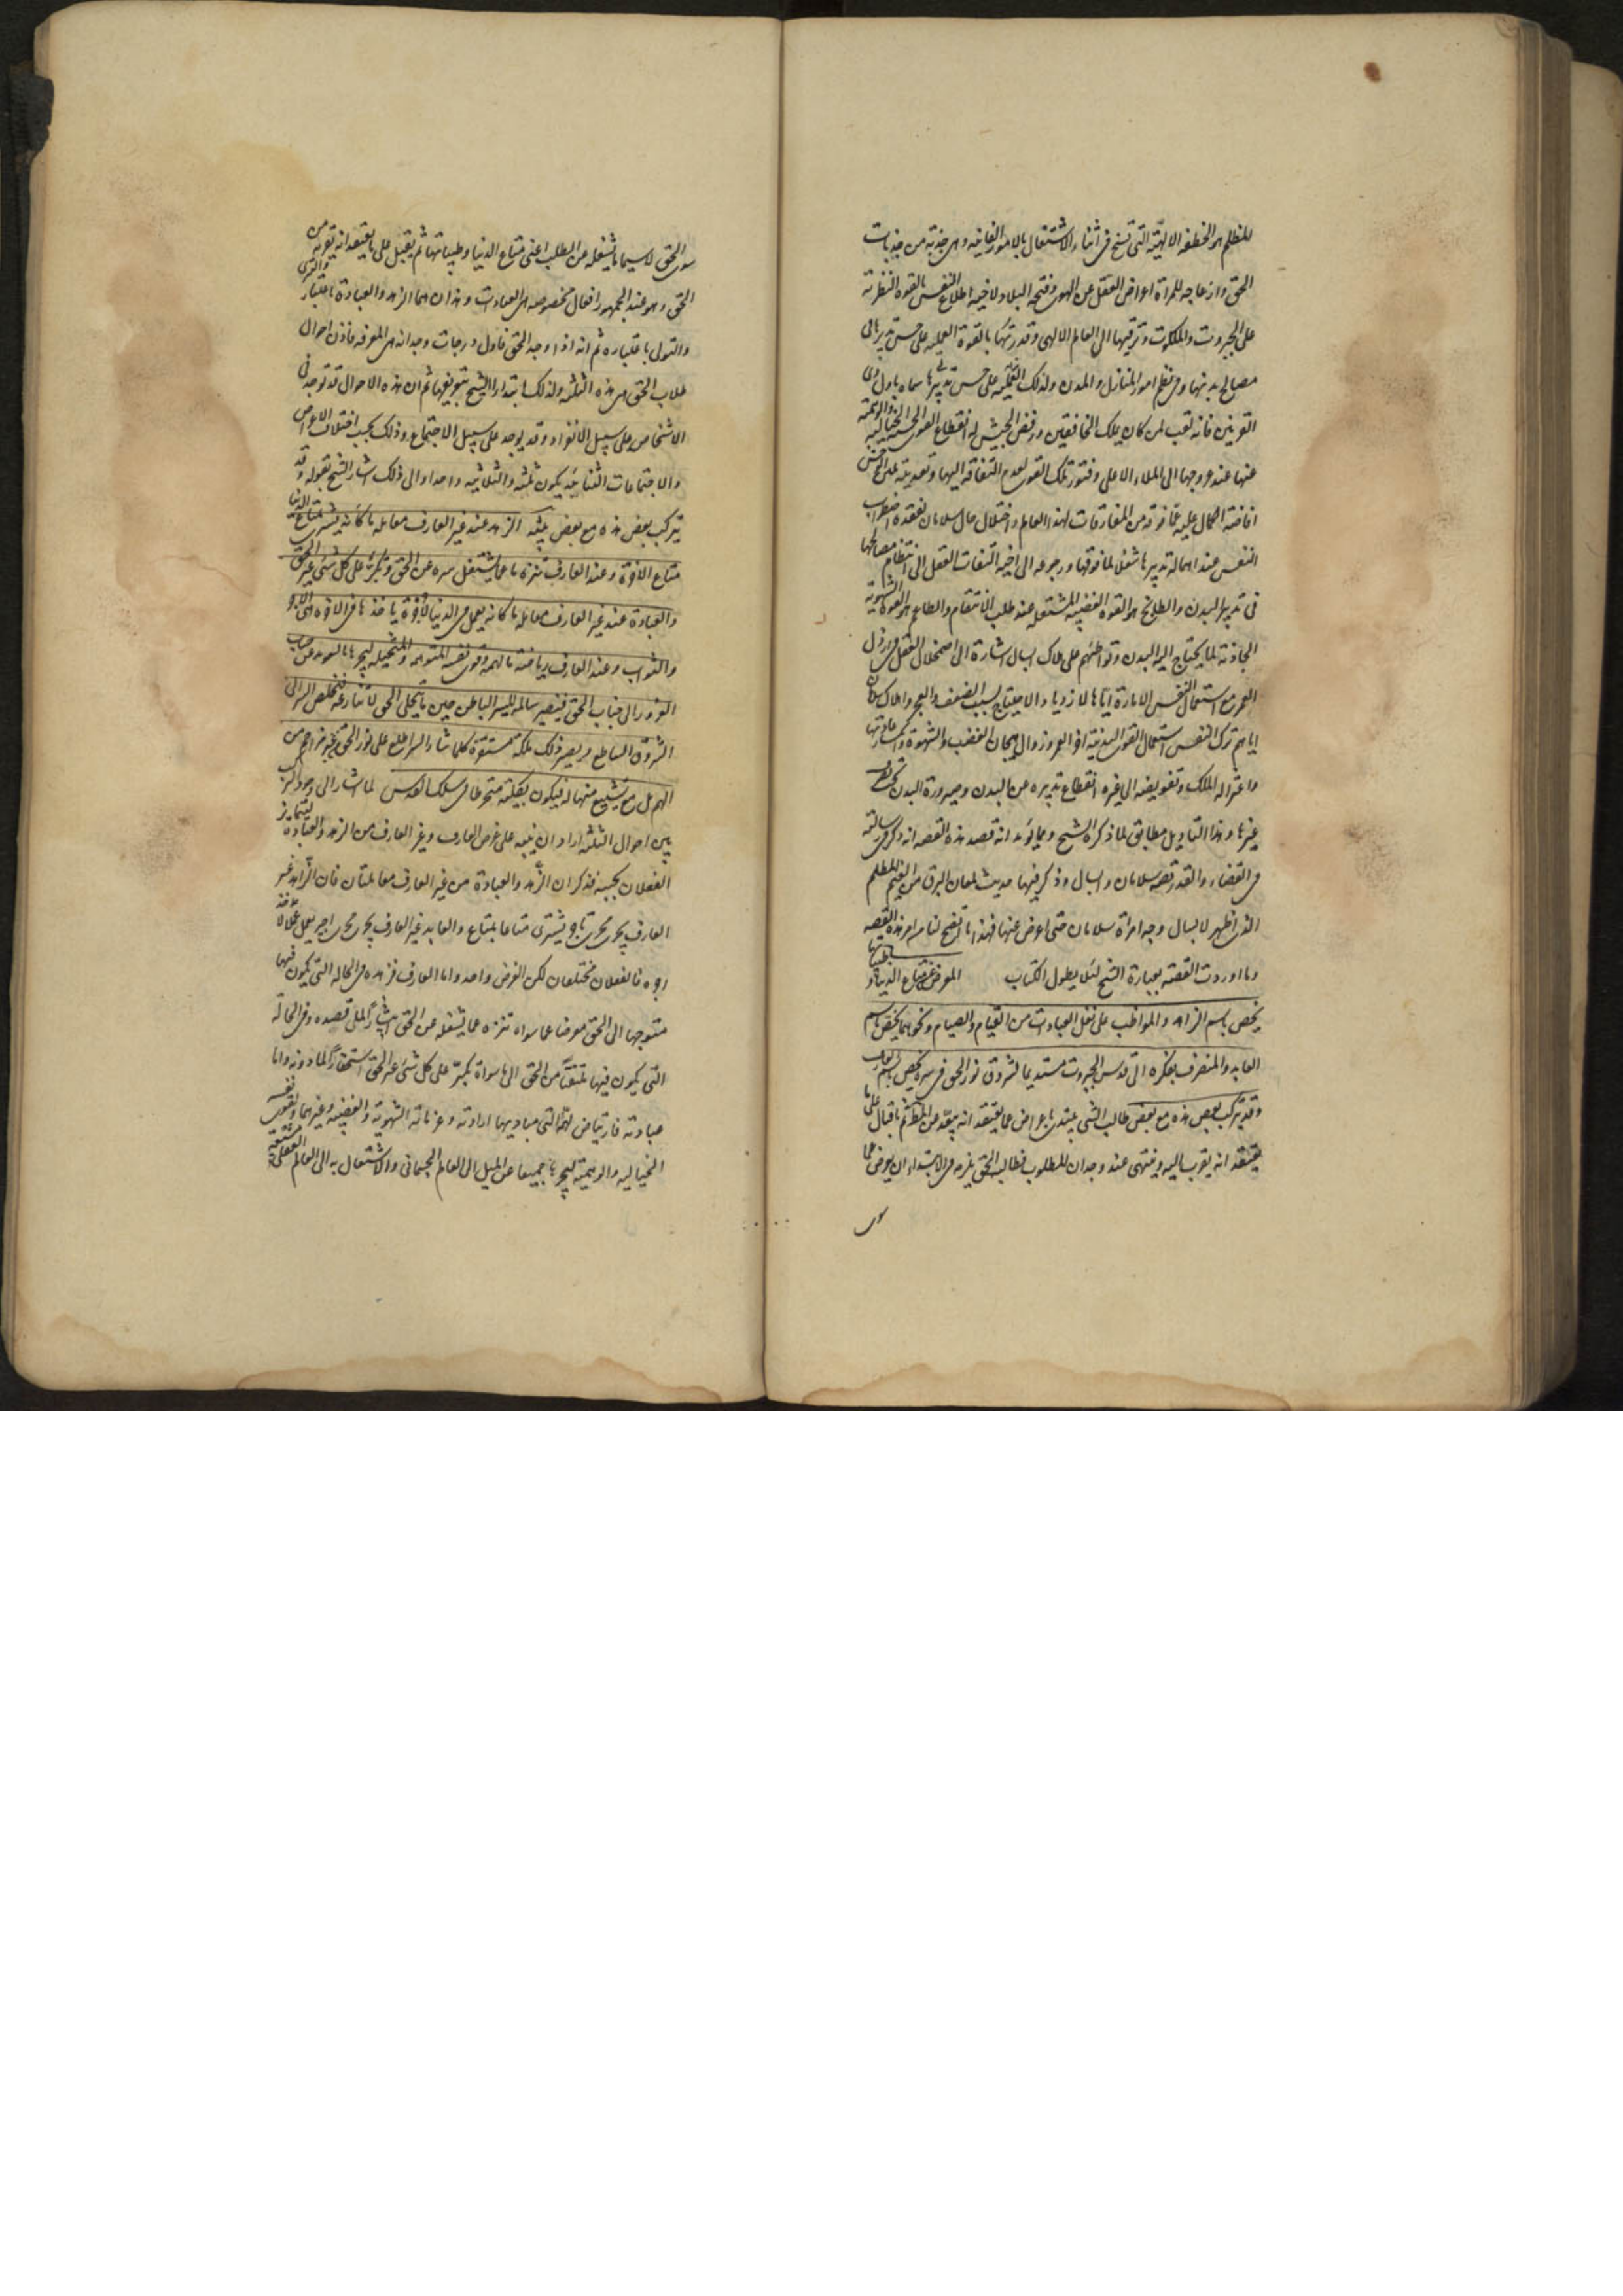 للمظلم هو الخطفة الالهية التى تسنح فى اثناء الاشتغال بالامور الفانية وهى جذبة من جذبات
الحق وازعاجه للمراة اعراض العقل عن الهوى وفتحه البلاد لاخيه اطلاع النفس بالقوة النظرية
على الجبروت والملكوت وترقيها الى العالم الالهى وقدرتها بالقوة العملية على حسن تدبيرها فى
مصالح بدنها وفى نظم امور المنازل والمدن ولذلك سماه باول ذى
القرنين فانه لقب لمن كان يملك الخافقين ورفض الجيش له انقطاع القوى الحسية والخيالية والوهمية
عنها عند عروجها الى الملاء الاعلى وفتور تلك القوى لعدم التفاته اليها وتغذيته بلبن الوحش
افاضة الكمال عليه عما فوقه من المفارقات لهذا العالم واختلال حال سلامان لفقده اضطراب
النفس عند اهمالها تدبيرها شغلا بما فوقها ورجوعه الى اخيه التفات العقل الى انتظام مصالحها
فى تدبير البدن والطابخ هو القوة الغضبية المشتعلة عند طلب الانتقام والطاعم هو القوة الشهوية
الجاذبة لما يحتاج اليه البدن وتواطئهم على هلاك ابسال اشارة الى اضمحلال العقل فى ارذل
العمر مع استعمال النفس الامارة اياها لازدياد الاحتياج بسبب الضعف والعجز واهلاك سلامان
اياهم ترك النفس استعمال القوى البدنية اخر العمر وزوال هيجان الغضب والشهوة وانكسار عاديتها
واعتزاله الملك وتفويضه الى غيره انقطاع تدبيره عن البدن وصيرورة البدن تحت تصرف
غيرها وهذا التاويل مطابق لما ذكره الشيخ ومما يؤيد انه قصد هذه القصة انه ذكر فى رسالته
فى القضاء والقدر قصة سلامان وابسال وذكر فيها حديث لمعان البرق من الغيم المظلم
الذى اظهر لابسال وجه امراة سلامان حتى اعرض عنها فهذا ما اتضح لنا من امر هذه القصة
وما اوردت القصة بعبارة الشيخ لئلا يطول الكتاب المعرض عن متاع الدنيا وطيباتها
يخص باسم الزاهد والمواظب على نقل العبادات من القيام والصيام ونحوهما يخص باسم
العابد والمتصرف بفكره الى قدس الجبروت مستديما لشروق نور الحق فى سره يخص باسم العارف
وقد يتركب بعض هذه مع بعض طالب الشئ يبتدى باعراض عما يعتقد انه يبعده عن المطلوب ثم باقبال على ما
يعتقد انه يقربه اليه وينتهى عند وجدان المطلوب فطالب الحق يلزمه فى الابتداء ان يعرض عما
سوى
سوى الحق لا سيما ما يشغله عن الطلب اعنى متاع الدنيا وطيباتها ثم يقبل على ما يعتقد انه يقربه من
الحق وهو عند الجمهور افعال مخصوصة هى العبادات وهذان هما الزهد والعبادة باعتبار والتبرى
والتولى باعتباره ثم انه اذا وجد الحق فاول درجات وجدانه هى المعرفة فاذن احوال
طلاب الحق هى هذه الثلثة ولذلك ابتداء الشيخ بتعريفها ثم ان هذه الاحوال قد توجد فى
الاشخاص على سبيل الانفراد وقد يوجد على سبيل الاجتماع وذلك بحسب اختلاف الاغراض
والاجتماعات الثنائية يكون ثلثة والثلاثية واحدا والى ذلك اشار الشيخ بقوله وقد
يتركب بعض هذه مع بعض الزهد عند غير العارف معاملة ما كانه يشترى بمتاع الدنيا
متاع الاخرة وعند العارف تنزه ما عما يشغل سره عن الحق وتكبر على كل شئ غير الحق
والعبادة عند غير العارف معاملة ما كانه يعمل فى الدنيا لاجرة ياخذها فى الاخرة هى الاجر
والثواب وعند العارف رياضة ما لهممه وقوى نفسه المتوهمة والمتخيلة ليجرها بالتعويد عن جناب
الغرور الى جناب الحق فتصير سالمة للسر الباطن حين ما يتجلى الحق لا تنازعه فيخلص السر الى
الشروق الساطع ويصير ذلك ملكة مستقرة كلما شاء السر اطلع على نور الحق غير مزاحم من
الهمم بل مع تشييع منها له فيكون بكليته منخرطا فى سلك القدس لما اشار الى وجود التركيب
بين احوال الثلثة اراد ان ينبه على غرض العارف وغير العارف من الزهد والعبادة ليتمايز
الفعلان بحسبه فذكر ان الزهد والعبادة من غير العارف معاملتان فان الزاهد غير
العارف يجرى مجرى تاجر يشترى متاعا بمتاع والعابد غير العارف يجرى مجرى اجير يعمل عملا لاخذ
اجرة فالفعلان مختلفان لكن الغرض واحد واما العارف فزهده فى الحالة التى يكون فيها
متوجها الى الحق معرضا عما سواه تنزه عما يشغله عن الحق ايثارا لما قصده وفى الحالة
التى يكون فيها ملتفتا من الحق الى ما سواه تكبر على كل شئ غير الحق استحقارا لما دونه واما
عبادته فارتياض لهممه التى مباديها ارادته وعزماته الشهوية والغضبية وغيرهما ولقوى نفسه
الخيالية والوهمية ليجرها جميعا عن الميل الى العالم الجسمانى والاشتغال به الى العالم العقلى